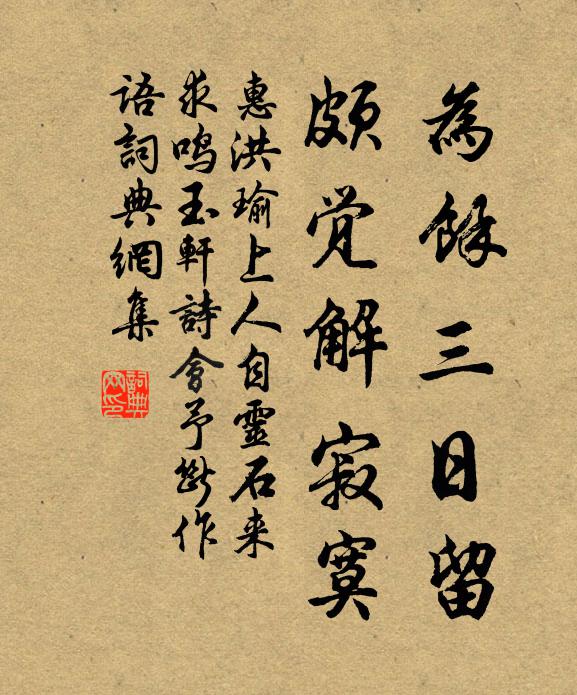 為餘三日留
頗觉解寂寞
惠洪瑜上人自靈石来
求鸣玉軒詩會予断作
语詞典網集
詞典網印